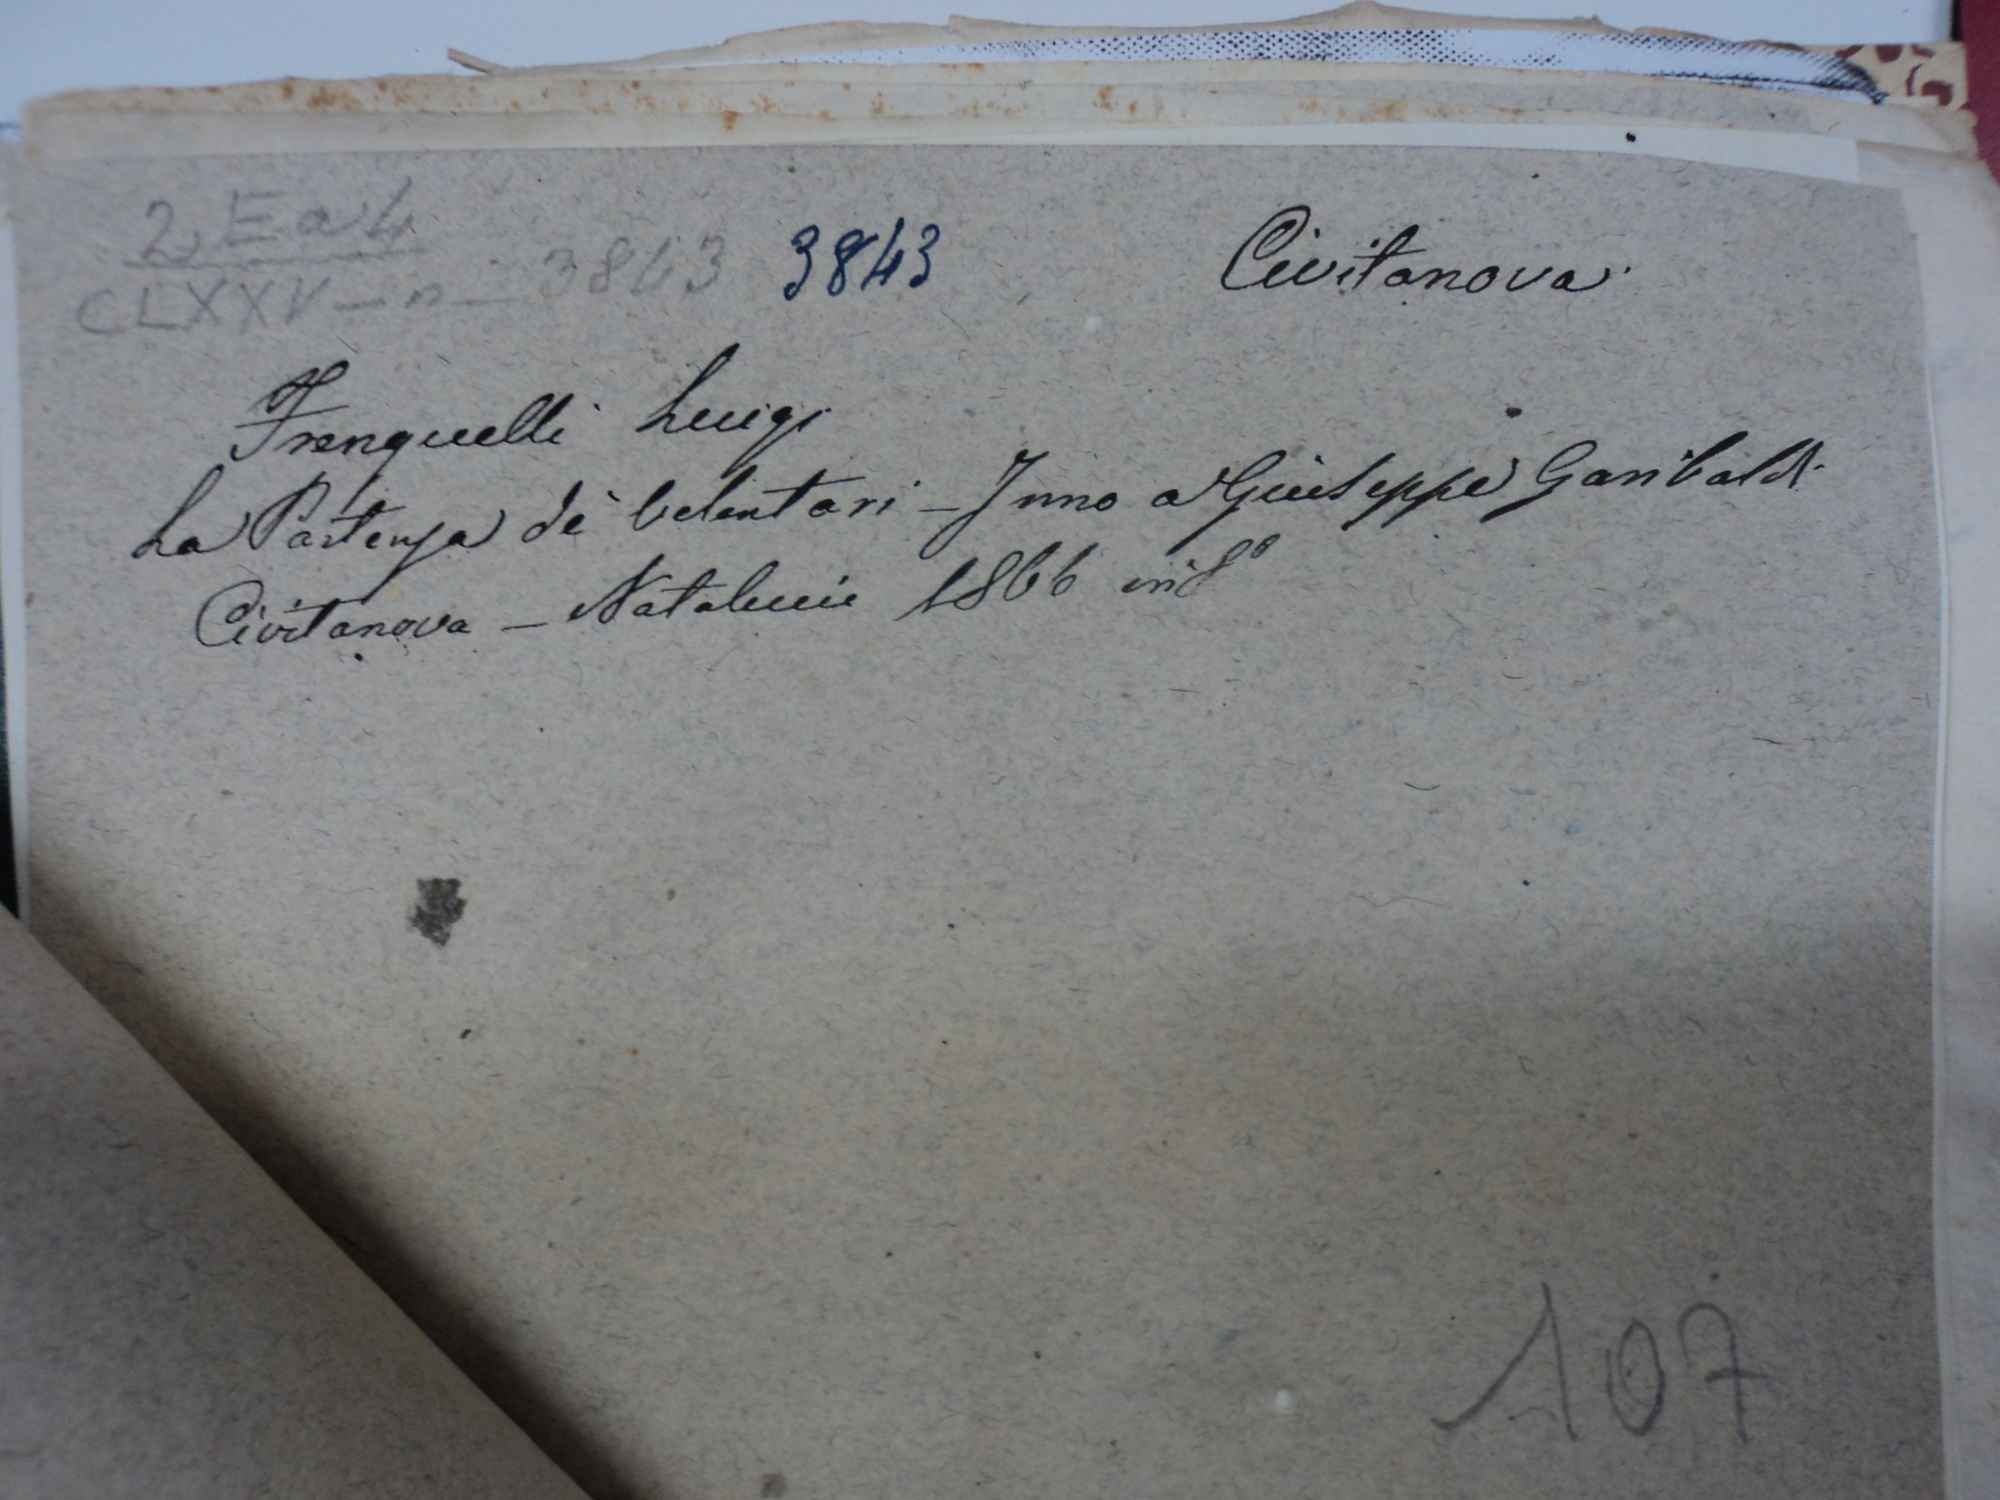 2 Ea4
CLXXV - n - 3843 3843 Civitanova
Frenquelli Luigi
La Partenza dè Volontari - Inno a Giuseppe Garibaldi
Civitanova - Natalucci 1866 in 8°
107